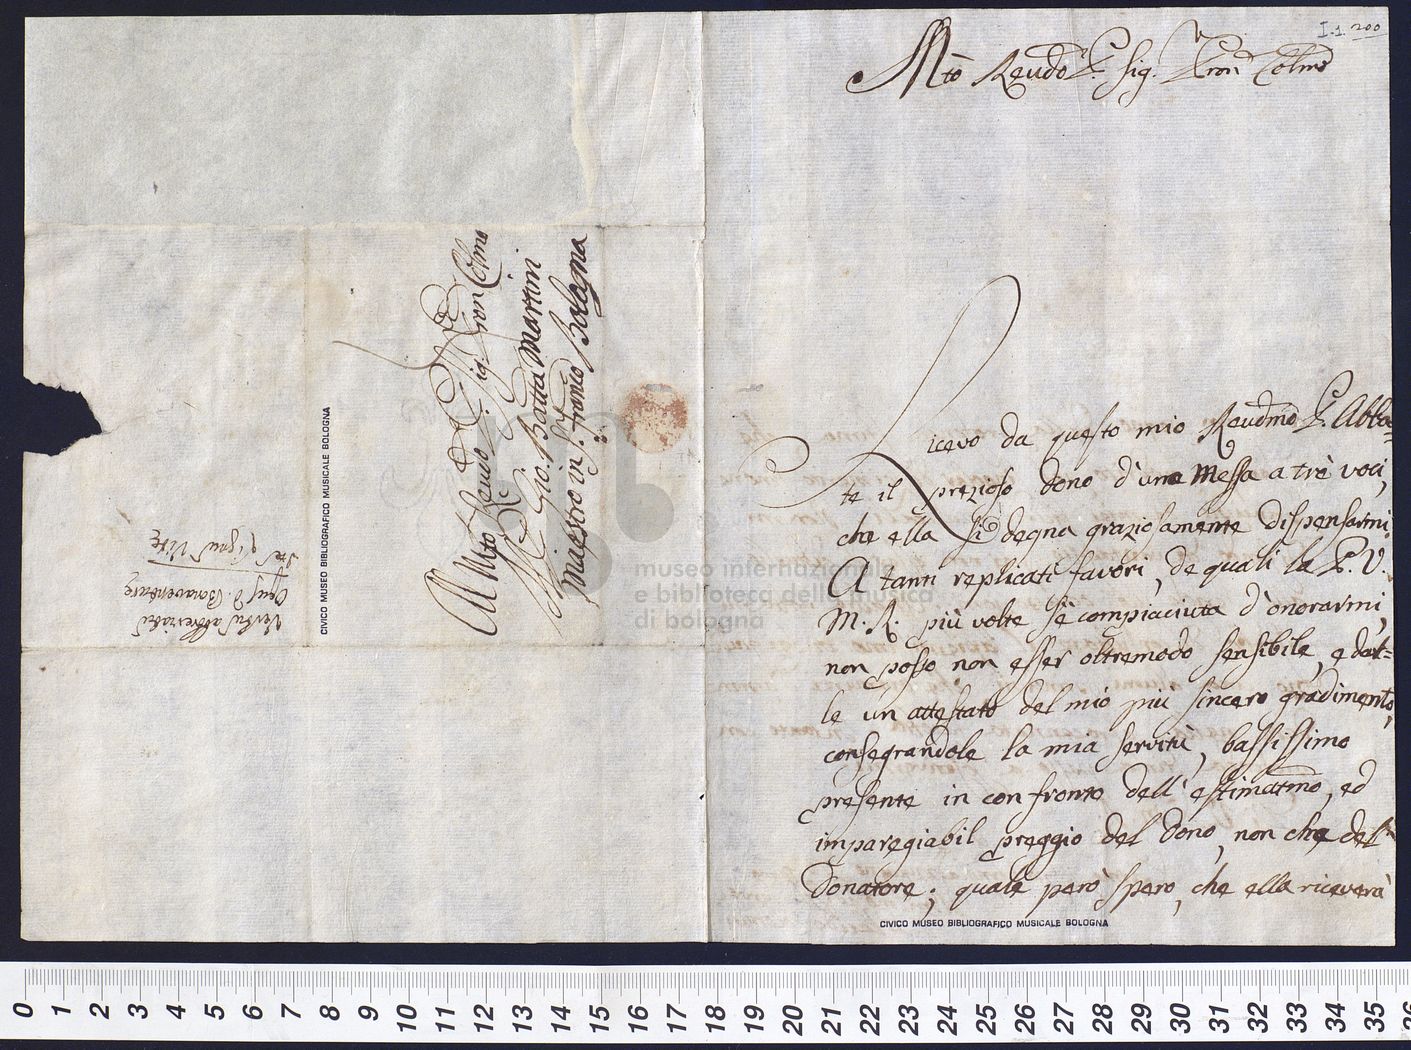 I.1.200
Mto Reudo P. Sig. Pron Colmo
Ricevo da questo mio Reudmo P. Abba=
te il prezioso dono d'una Messa a trè voci,
che ella si degna graziosamente dispensarmi.
A tanti replicati favori, de quali la P. V.
M. R. più volte s'è compiaciuta d'onorarmi,
non posso non esser oltremodo sensibile, e dar=
le un attestato del mio più sincero gradimento,
consegrandole la mia servitù, bassissimo
presente in confronto dell'estimatmo, ed
imparegiabil preggio del dono, non che del
Donatore; quale però spero, che ella riceverà
CIVICO MUSEO BIBLIOGRAFICO MUSICALE BOLOGNA
Al Mto Reudo P. Sig. Pron Colmo
Il P. Gio. Batta Martini
Maestro in S. Franco Bologna
CIVICO MUSEO BIBLIOGRAFICO MUSICALE BOLOGNA
museo internazionale
e biblioteca della musica
di bologna
0 1 2 3 4 5 6 7 8 9 10 11 12 13 14 15 16 17 18 19 20 21 22 23 24 25 26 27 28 29 30 31 32 33 34 35 36